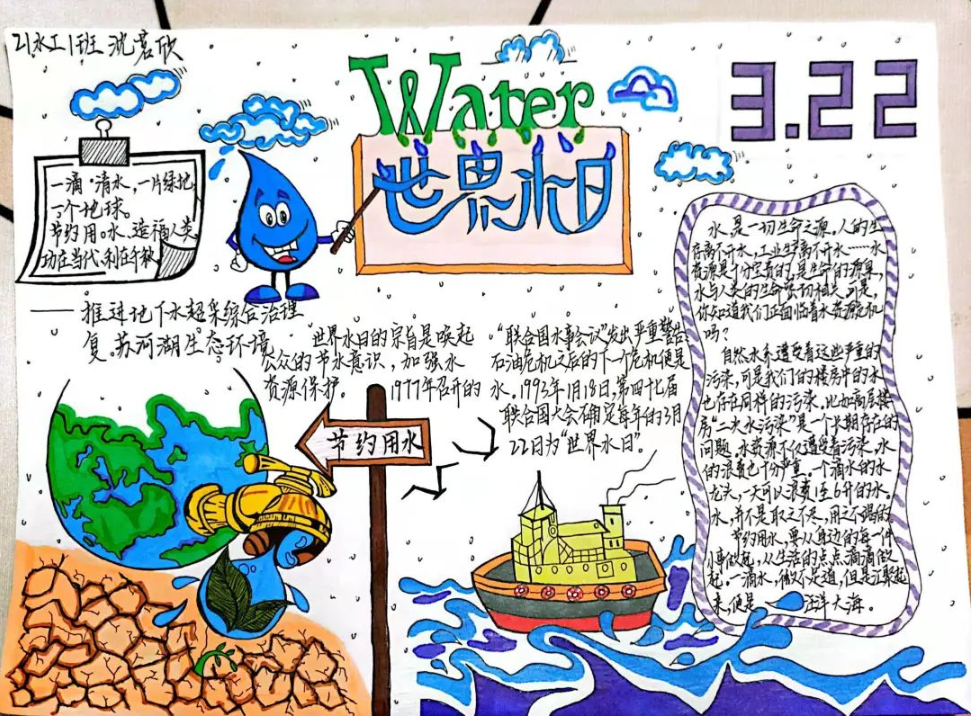 21水工1班 沈茗欣
Water
世界水日
3.22
一滴·清水，一片绿地
一个地球。
节约用水、造福人类
功在当代、利在千秋
——推进地下水超采综合治理
复苏河湖生态环境
世界水日的宗旨是唤起
公众的节水意识，加强水
资源保护。 1977年召开的
“联合国水事会议”发出严重警告
石油危机之后的下一个危机便是
水。1993年1月18日，第四十七届
联合国大会确定每年的3月
22日为“世界水日”。
节约用水
水，是一切生命之源。人的生
存离不开水，工业生产离不开水……水
资源是十分宝贵的，是生命的源泉，
水与人类的生命密切相关，可是，
你知道我们正面临着水资源危机
吗？
自然水系遭受着这些严重的
污染，可是我们的楼房中的水
也存在同样的污染，比如高层楼
房“二次水污染”是一个长期存在的
问题。水资源不仅遭受着污染，水
的浪费也十分严重。一个滴水的水
龙头，一天可以浪费1至6升的水。
水，并不是取之不尽，用之不竭的
节约用水，要从身边的每一件
小事做起，从生活的点点滴滴做
起，一滴水，微不足道，但是汇聚起
来，便是 洋大海。